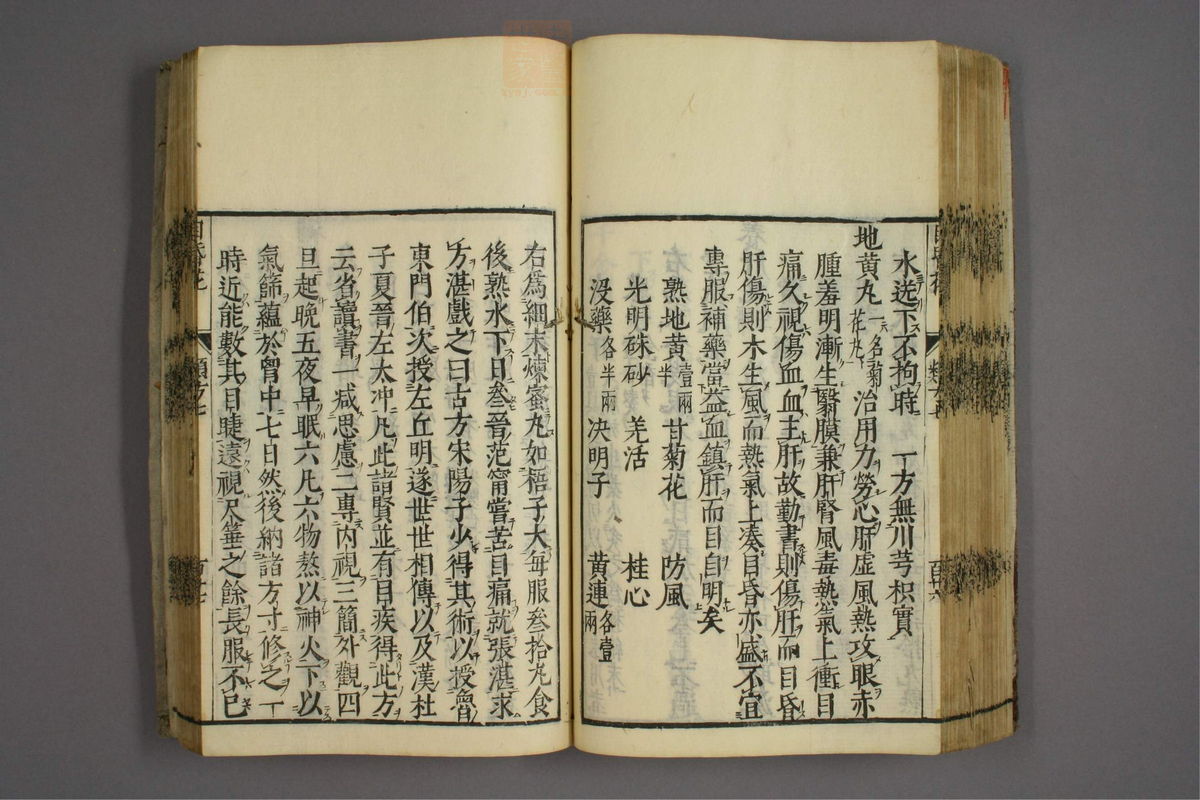 水送下不拘時 一方無川芎枳實
地黃丸一名菊花丸 治用力勞心肝虛風熱攻眼赤
腫羞明漸生翳膜兼肝腎風毒熱氣上衝目
痛久視傷血血主肝故勤書則傷肝而目昏
肝傷則木生風而熱氣上湊目昏亦盛不宜
專服補藥當益血鎮肝而目自明矣
熟地黃壹兩半 甘菊花 防風
光明硃砂 羌活 桂心
沒藥各半兩 决明子 黃連各壹兩
右爲細末煉蜜丸如梧子大每服叁拾丸食
後熟水下日叁晉范甯嘗苦目痛就張湛求
方湛戲之曰古方宋陽子少得其術以授魯
東門伯次授左丘明遂世世相傳以及漢杜
子夏晉左太冲凡此諸賢並有目疾得此方
云省讀書一减思慮二專内視三簡外觀四
旦起晚五夜早眠六凡六物熬以神火下以
氣篩蘊於胷中七日然後納諸方寸修之一
時近能數其目睫遠視尺箠之餘長服不已